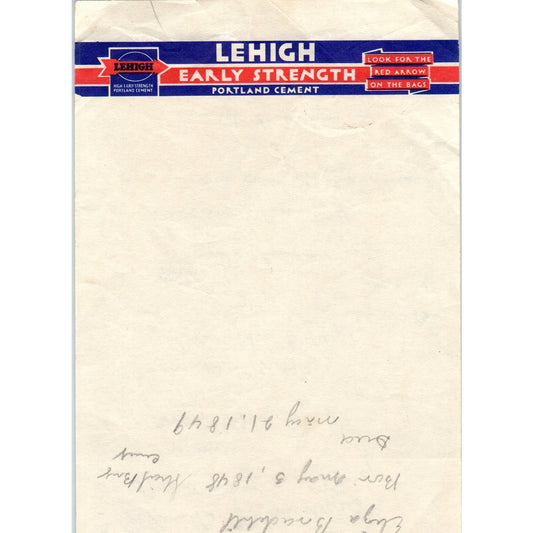 LEHIGH
HIGH EARLY STRENGTH
PORTLAND CEMENT
LEHIGH
EARLY STRENGTH
PORTLAND CEMENT
LOOK FOR THE
RED ARROW
ON THE BAGS
Eliza
Bor may 5, 1848
Died
may 21, 1849